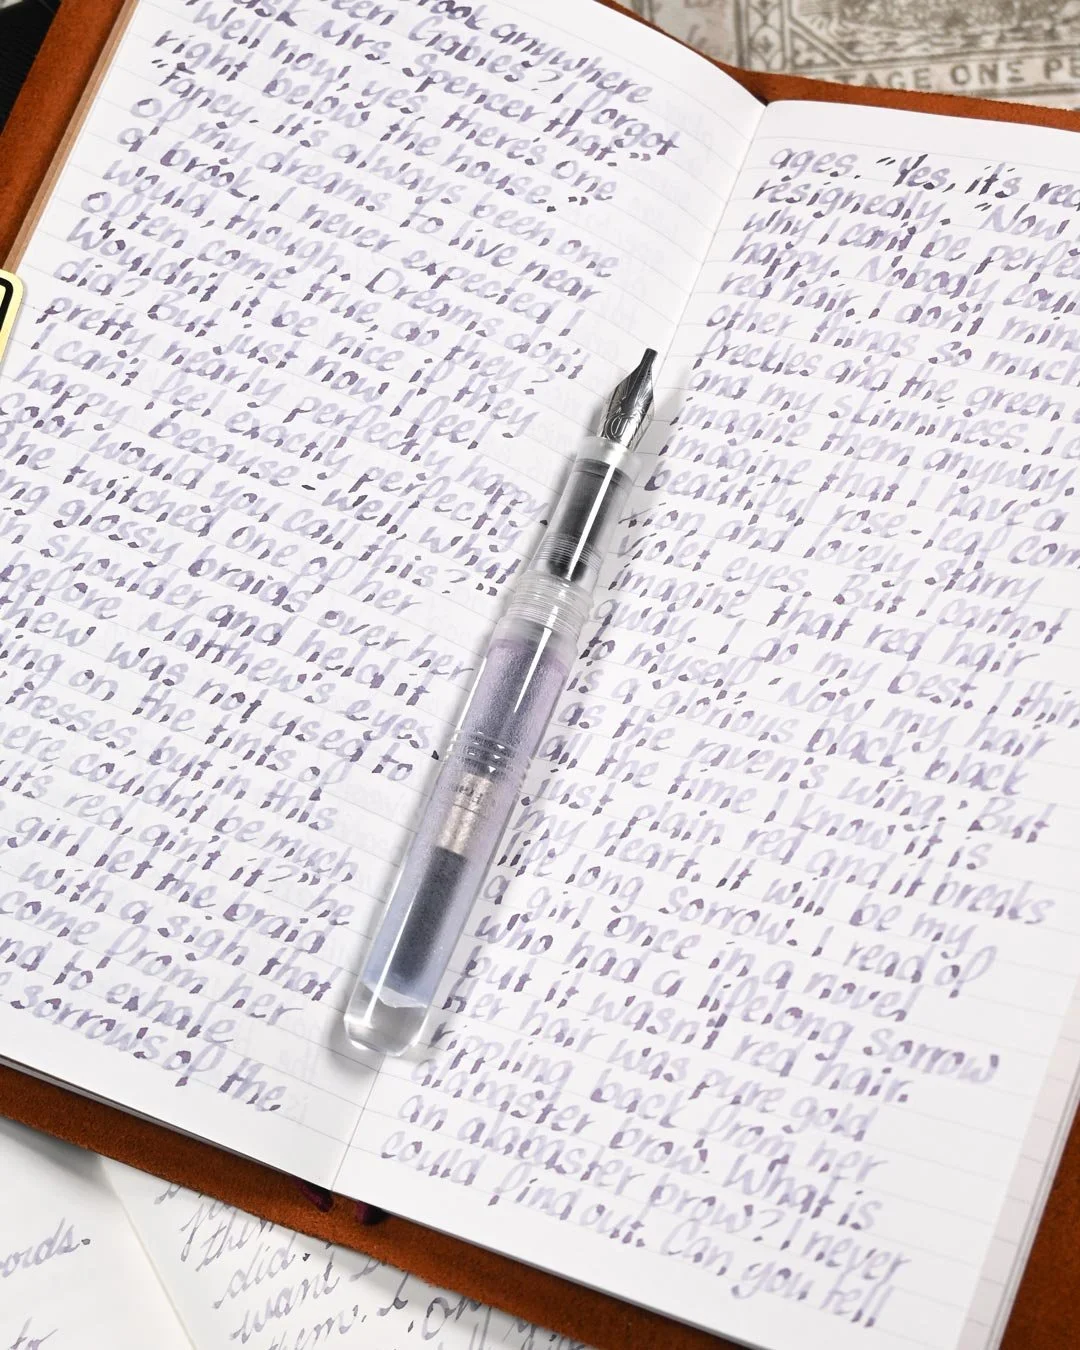 been brook anywhere
Gables? I forgot
ask Mrs. Spencer that."
"Well now, yes, there's one
right below the house."
"Fancy. It's always been one
of my dreams to live near
a brook. I never expected I
would, though. Dreams don't
often come true, do they?
Wouldn't it be nice if they
did? But just now I feel
pretty nearly perfectly happy.
I can't feel exactly perfectly
happy because - well, what
color would you call this?"
She twitched one of her
long glossy braids over her
thin shoulder and held it
before Matthew's eyes.
Matthew was not used to
deciding on the tints of
tresses, but in this
there couldn't be much
"It's red, ain't it?" he
girl let the braid
with a sigh that
come from her
and to exhale
sorrows of the
ages. "Yes, it's red
resignedly. "Now
why I can't be perfec
happy. Nobody coul
red hair. I don't min
other things so much
freckles and the green e
and my slimness. I c
imagine them anyway.
imagine that I have a
beautiful rose-leaf com
xion and lovely starry
violet eyes. But I cannot
imagine that red hair
away. I do my best. I thin
to myself "Now my hair
is a glorious black, black
as the raven's wing. But
all the time I know it is
just plain red and it breaks
my heart. It will be my
life long sorrow. I read of
a girl once in a novel
who had a lifelong sorrow
but it wasn't red hair.
Her hair was pure gold
rippling back from her
alabaster brow. What is
an alabaster brow? I never
could find out. Can you tell
TAGE ONE PE
ords.
to
did.
want
them. I